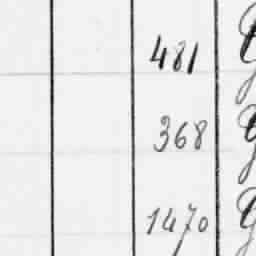 481
368
1470